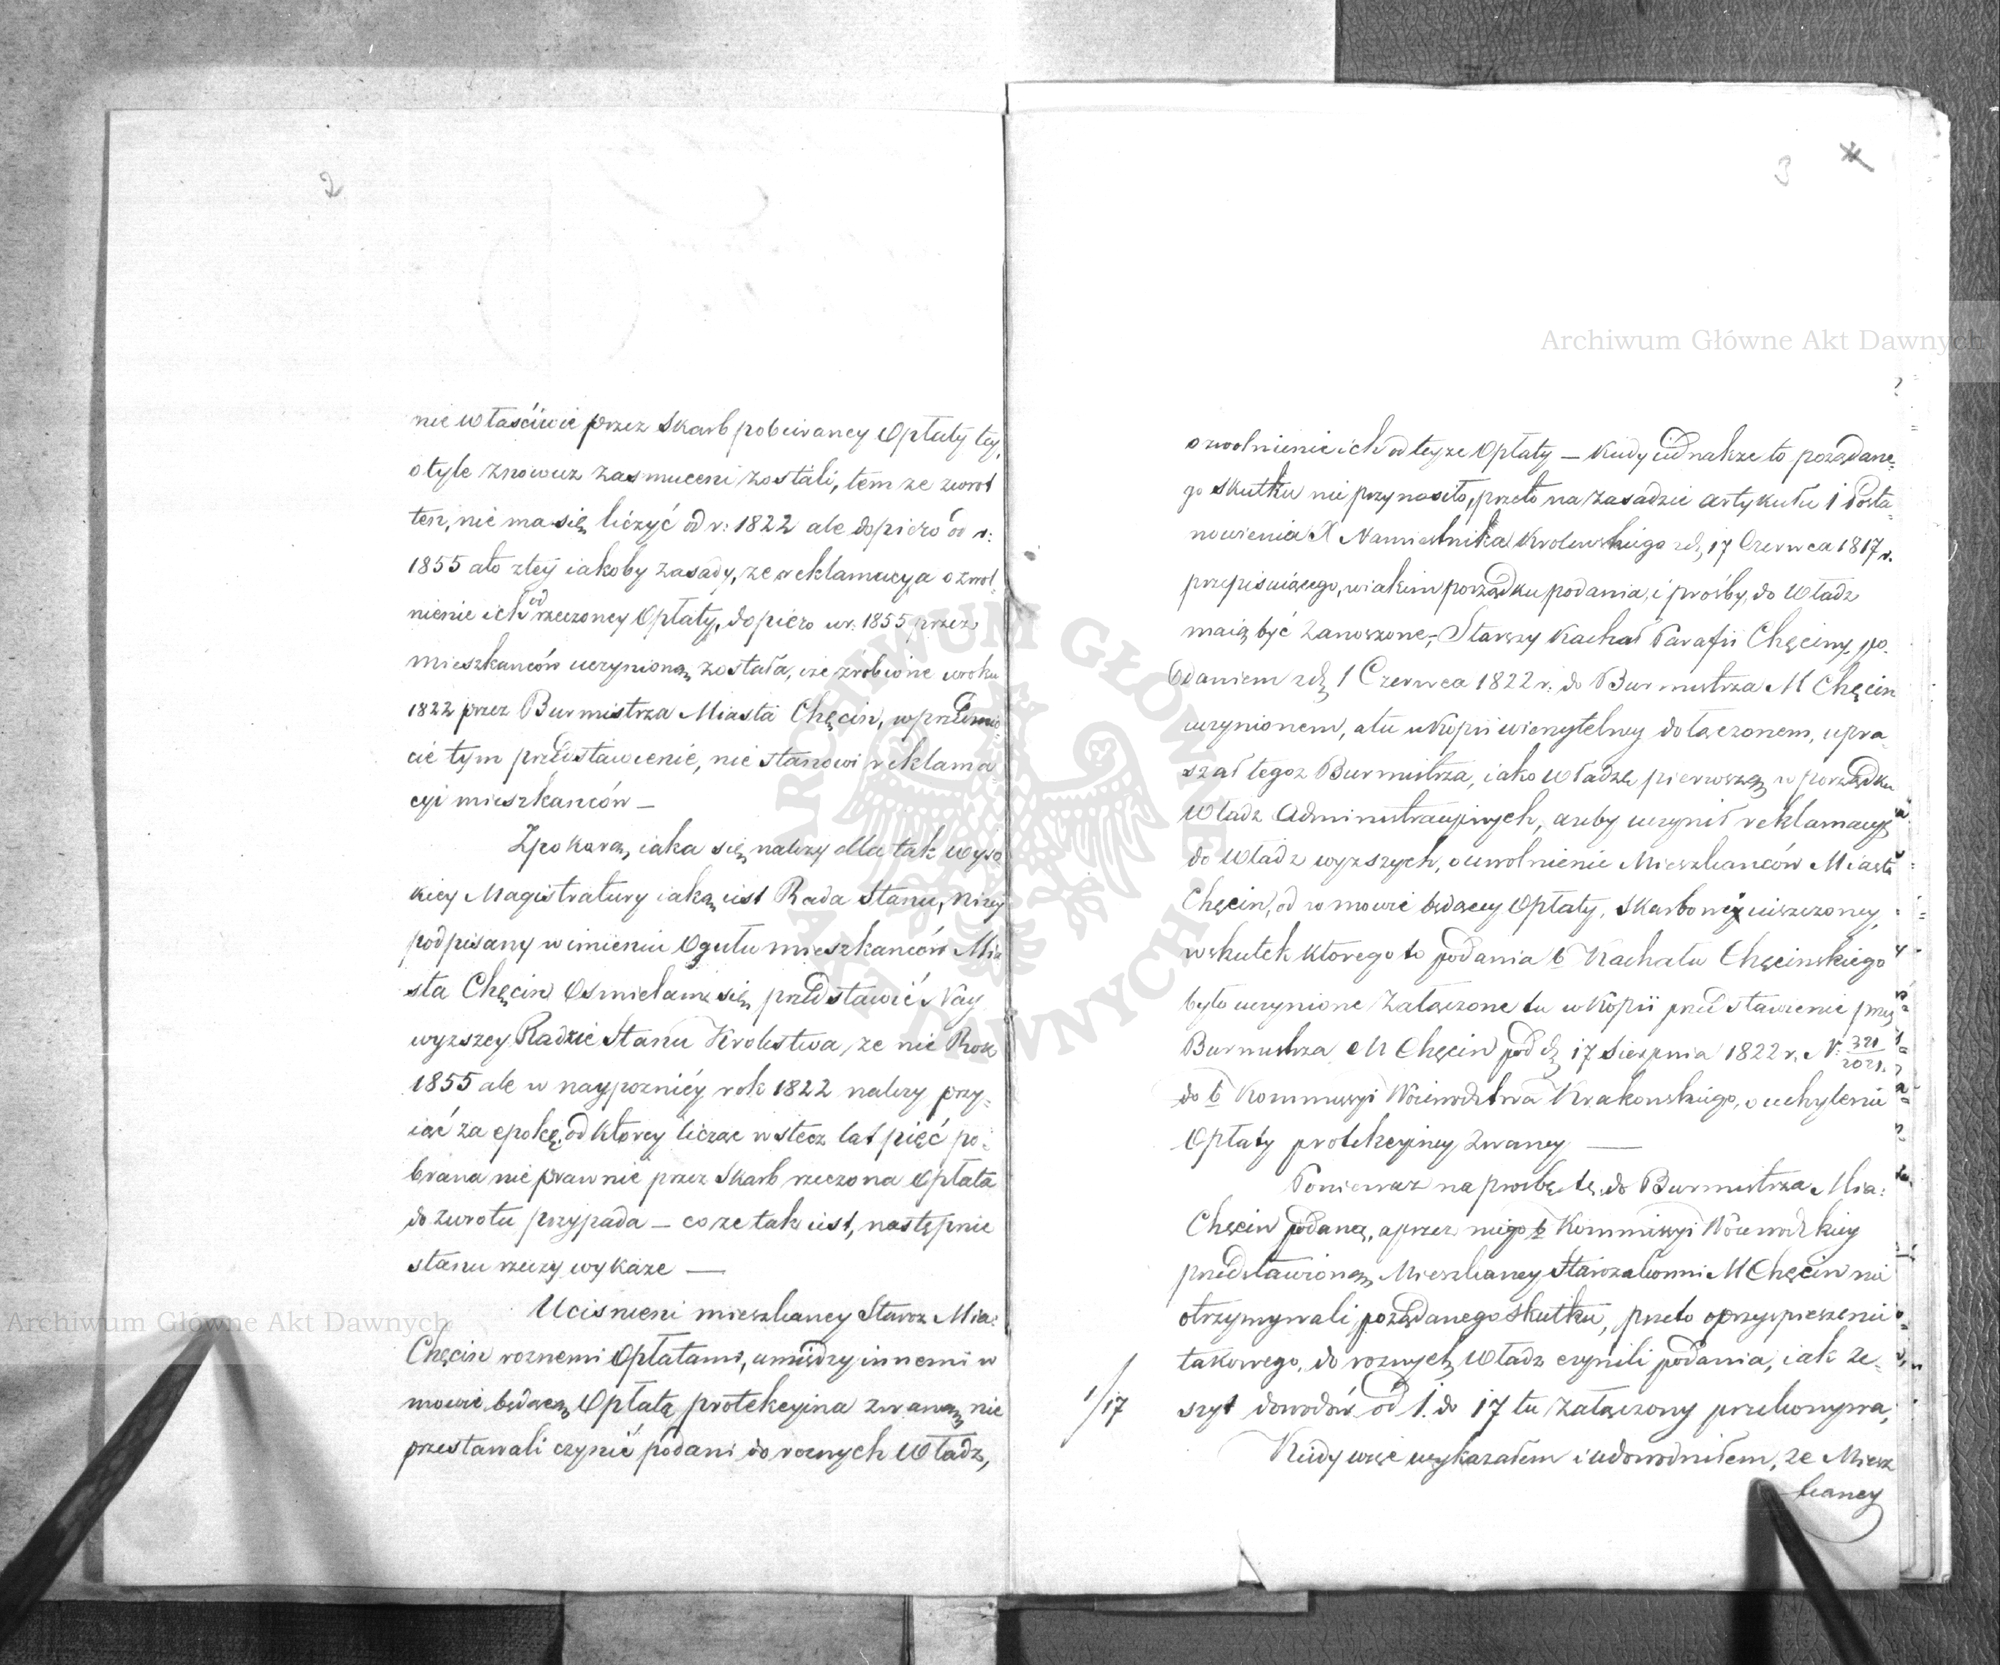 2
nie właściwie przez Skarb pobieraney Opłaty tey,
o tyle znowuz zasmuceni zostali, tem ze zwrot
ten, nie ma się liczyć od r: 1822 ale dopiero od r:
1855 a to z tey iakoby zasady, ze reklamacya o zwol
nienie ich od rzeczoney Opłaty, dopiero w r. 1855 przez
mieszkańców uczynioną została, i ze zrobione w roku
1822 przez Burmistrza Miasta Chęcin, w przedmio-
cie tym przedstawienie, nie stanowi reklama-
cyi mieszkańców —
Z pokorą, iaka się, nalezy dla tak wyso
kiey Magistratury iaką iest Rada Stanu, nizey
podpisany w imieniu Ogułu mieszkańców Mia
sta Chęcin Osmielam się przedstawić Nay
wyzszey Radzie Stanu Krolestwa, ze nie Rok
1855 ale w naypoznięy rok 1822 nalezy przy-
iąć za epokę, od ktorey licząc wstecz lat pięć po-
brana nie prawnie przez Skarb rzeczona Opłata
do zwrotu przypada — co ze tak iest, następnie
stanu rzeczy wykaze —
Ucisnieni mieszkancy Staroz Mia:
Chęcin roznemi Opłatami, a między innemi w
mowie będącą Opłatą protekcyina zwaną nie
przestawali czynić podani do roznych Władz,
3
o zwolnienie ich od teyze Opłaty — Kiedy iednakze to poządane-
go skutku nie przynosiło, przeto na zasadzie artykułu 1 Posta-
nowienia X Namiestnika Krolewskiego z d, 17 Czerwca 1817 r.
przepisuiącego, w iakim porządku podania, i prośby, do Władz
maią być zanoszone, Starszy Kachał Parafii Chęciny, po-
daniem z d, 1 Czerwca 1822 r: do Burmistrza M Chęcin
uczynionem, a tu w Kopii wierzytelney dołączonem, upra-
szał tegoz Burmistrza, iako Władzę pierwszą w porządku
Władz Administracyinych, azeby uczynił reklamacyę
do Władz wyzszych, o uwolnienie Mieszkańców Miasta
Chęcin, od w mowie będącey Opłaty, Skarbowey uiszczoney,
wskutek ktorego to podania b Kachału Chęcinskiego
było uczynione załączone tu w Kopii przedstawienie przez
Burmistrza M Chęcin pod d, 17 Sierpnia 1822 r. N: 321/2021.
do b Kommissyi Woiewodztwa Krakowskiego, o uchylenie
Opłaty protekcyiney zwaney —
Poniewaz na prośbę tę, do Burmistrza Mia:
Chęcin podaną, a przez niego b Kommissyi Woiewodzkiey
przedstawioną Mieszkancy Starozakonni M Chęcin nie
otrzymywali poządanego skutku, przeto o przyspieszenie
takowego, do roznych Władz czynili podania, iak ze-
1/17
szyt dowodów od 1. do 17 tu załączony przekonywa,
Kiedy więc wykazałem i udowodniłem, ze Miesz
kancy
ARCHIWUM GŁÓWNE AKT DAWNYCH
Archiwum Główne Akt Dawnych
Archiwum Główne Akt Dawnych